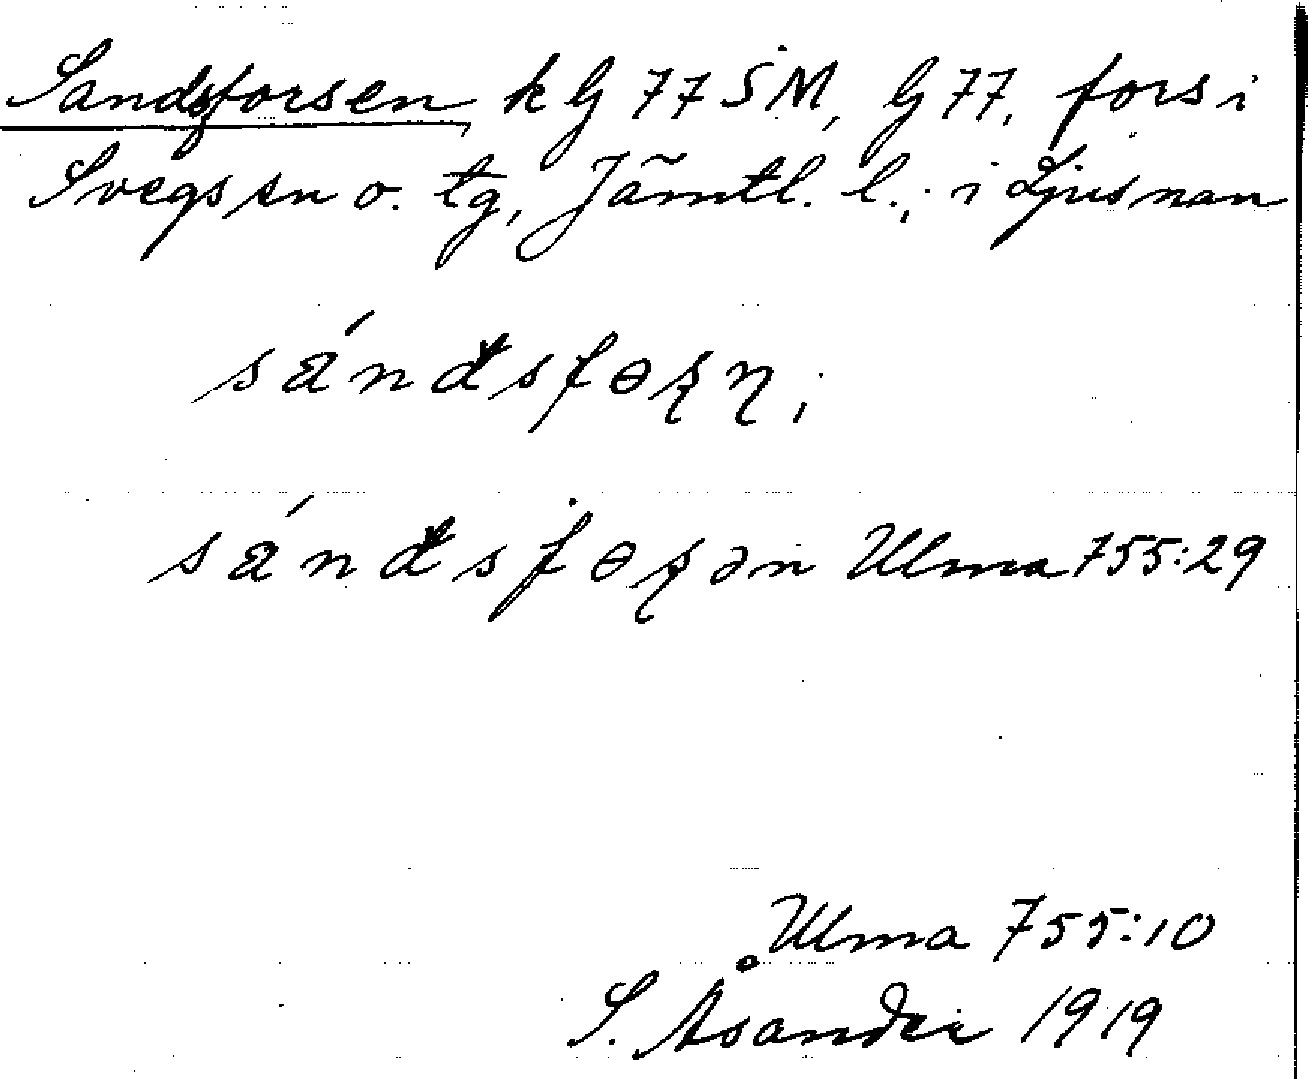 Sandsforsen k G 77 SM, G 77, fors i
Svegs sn o. tg, Jämtl. l.; i Ljusnan
sándsfɵʂn̥;
sándsfɵʂən Ulma 755:29
Ulma 755:10
S. Åsander 1919